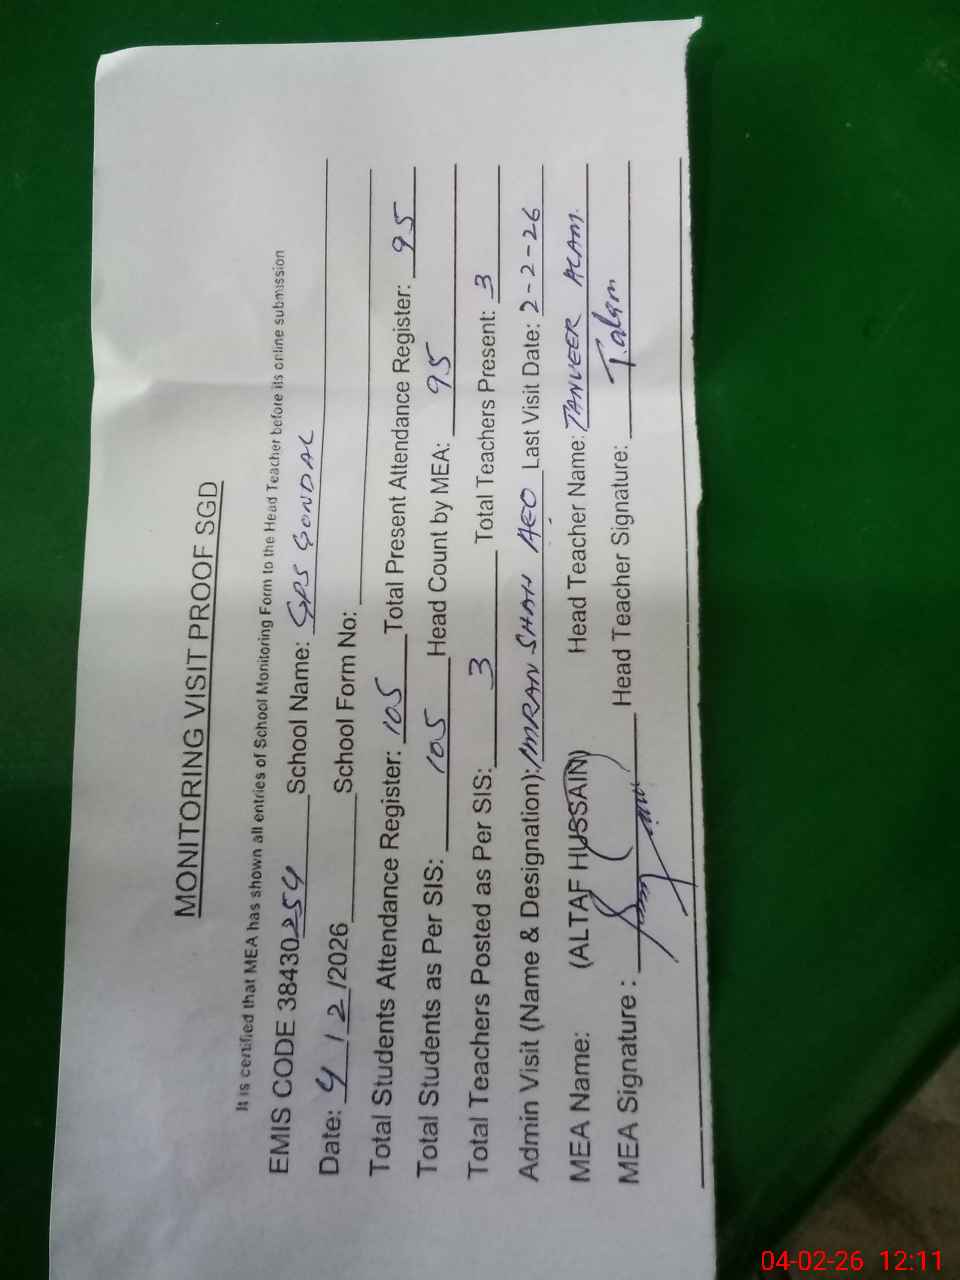 MONITORING VISIT PROOF SGD
It is certified that MEA has shown all entries of School Monitoring Form to the Head Teacher before its online submission
EMIS CODE 38430254 School Name: GPS GONDAL
Date: 4/2/2026 School Form No:
Total Students Attendance Register: 105 Total Present Attendance Register: 95
Total Students as Per SIS: 105 Head Count by MEA: 95
Total Teachers Posted as Per SIS: 3 Total Teachers Present: 3
Admin Visit (Name & Designation): IMRAN SHAH AEO Last Visit Date: 2-2-26
MEA Name: (ALTAF HUSSAIN) Head Teacher Name: TANVEER ALAM
MEA Signature: Head Teacher Signature: T.alam
04-02-26 12:11